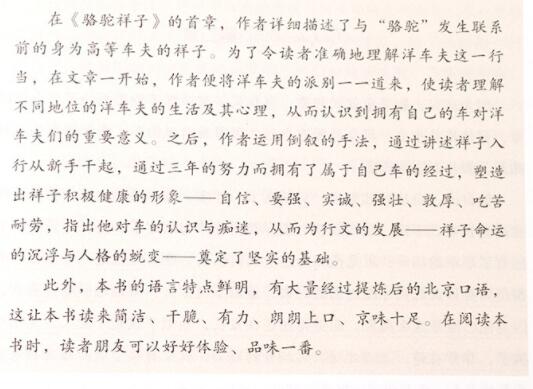 在《骆驼祥子》的首章，作者详细描述了与“骆驼”发生联系
前的身为高等车夫的祥子。为了令读者准确地理解洋车夫这一行
当，在文章一开始，作者便将洋车夫的派别一一道来，使读者理解
不同地位的洋车夫的生活及其心理，从而认识到拥有自己的车对洋
车夫们的重要意义。之后，作者运用倒叙的手法，通过讲述祥子入
行从新手干起，通过三年的努力而拥有了属于自己车的经过，塑造
出祥子积极健康的形象——自信、要强、实诚、强壮、敦厚、吃苦
耐劳，指出他对车的认识与痴迷，从而为行文的发展——祥子命运
的沉浮与人格的蜕变——奠定了坚实的基础。
此外，本书的语言特点鲜明，有大量经过提炼后的北京口语，
这让本书读来简洁、干脆、有力、朗朗上口、京味十足。在阅读本
书时，读者朋友可以好好体验、品味一番。